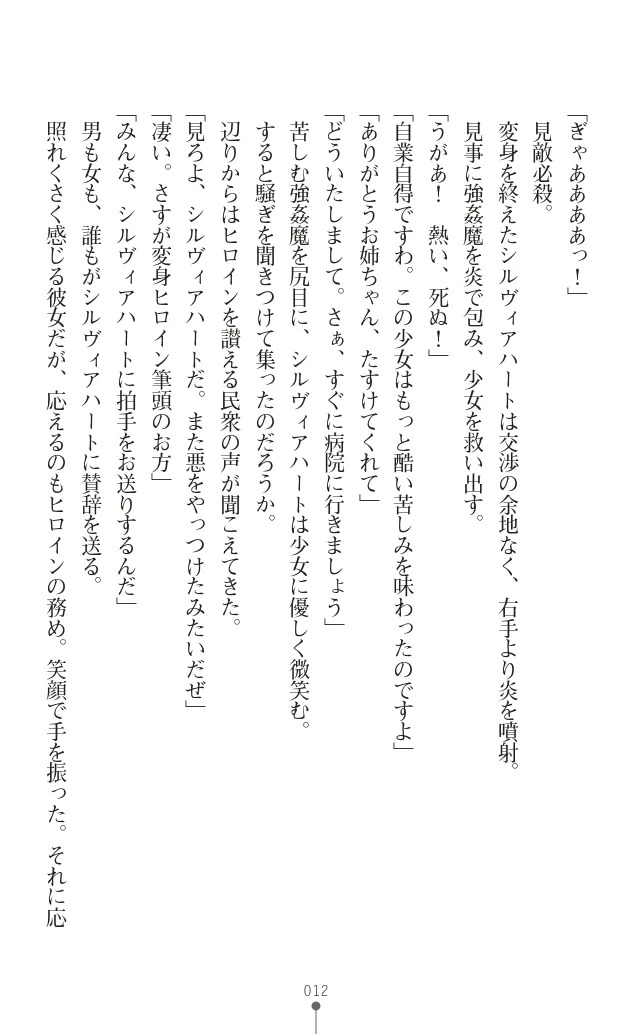 「ぎゃああああっ！」
見敵必殺。
変身を終えたシルヴィアハートは交渉の余地なく、右手より炎を噴射。
見事に強姦魔を炎で包み、少女を救い出す。
「うがあ！　熱い、死ぬ！」
「自業自得ですわ。この少女はもっと酷い苦しみを味わったのですよ」
「ありがとうお姉ちゃん、たすけてくれて」
「どういたしまして。さぁ、すぐに病院に行きましょう」
苦しむ強姦魔を尻目に、シルヴィアハートは少女に優しく微笑む。
すると騒ぎを聞きつけて集ったのだろうか。
辺りからはヒロインを讃える民衆の声が聞こえてきた。
「見ろよ、シルヴィアハートだ。また悪をやっつけたみたいだぜ」
「凄い。さすが変身ヒロイン筆頭のお方」
「みんな、シルヴィアハートに拍手をお送りするんだ」
男も女も、誰もがシルヴィアハートに賛辞を送る。
照れくさく感じる彼女だが、応えるのもヒロインの務め。笑顔で手を振った。それに応
012